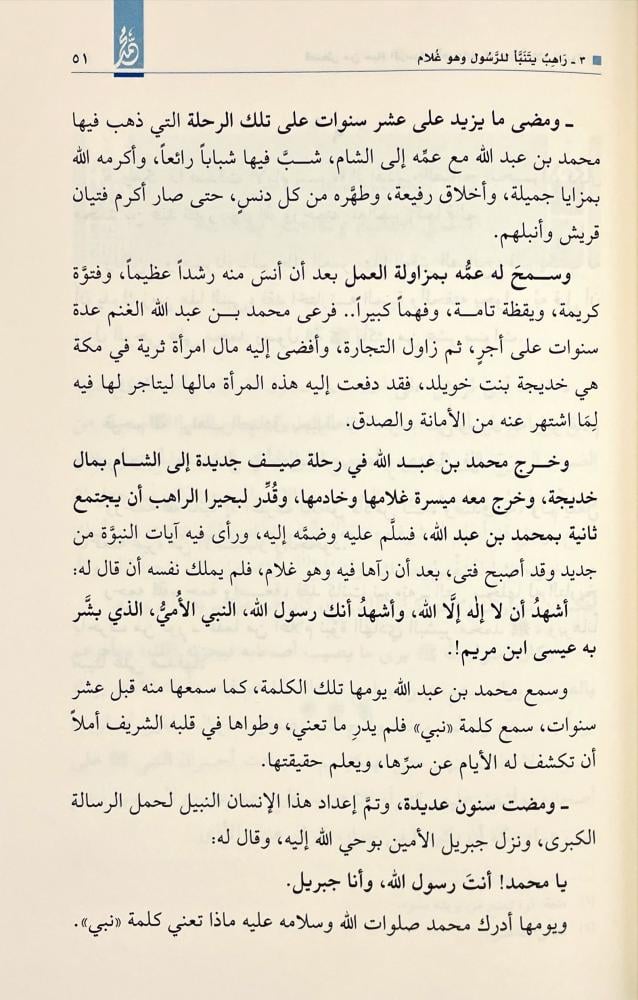 ٣ ـ رَاهِبٌ يتَنَبَّأ للرَّسُول وهو غُلام
محمد
٥١
ـ ومضى ما يزيد على عشر سنوات على تلك الرحلة التي ذهب فيها
محمد بن عبد الله مع عمِّه إلى الشام، شــبَّ فيها شباباً رائعاً، وأكرمه الله
بمزايا جميلة، وأخلاق رفيعة، وطهَّره من كل دنسٍ، حتى صار أكرم فتيان
قريش وأنبلهم.
وســمحَ له عمُّه بمزاولة العمل بعد أن أنسَ منه رشداً عظيماً، وفتوَّة
كريمة، ويقظة تامــة، وفهماً كبيراً.. فرعى محمد بــن عبد الله الغنم عدة
سنوات على أجرٍ، ثم زاول التجارة، وأفضى إليه مال امرأة ثرية في مكة
هي خديجة بنت خويلد، فقد دفعت إليه هذه المرأة مالها ليتاجر لها فيه
لِمَا اشتهر عنه من الأمانة والصدق.
وخــرج محمد بن عبــد الله في رحلة صيــف جديدة إلى الشــام بمال
خديجة، وخرج معه ميسرة غلامها وخادمها، وقُدِّر لبحيرا الراهب أن يجتمع
ثانية بمحمد بن عبد الله، فسلَّم عليه وضمَّه إليه، ورأى فيه آيات النبوَّة من
جديد وقد أصبح فتى، بعد أن رآها فيه وهو غلام، فلم يملك نفسه أن قال له:
أشهدُ أن لا إلٰه إلَّا الله، وأشهدُ أنك رسول الله، النبي الأُميُّ، الذي بشَّر
به عيسى ابن مريم!.
وسمع محمد بن عبد الله يومها تلك الكلمة، كما سمعها منه قبل عشر
سنوات، سمع كلمة «نبي» فلم يدرِ ما تعني، وطواها في قلبه الشريف أملاً
أن تكشف له الأيام عن سرِّها، ويعلم حقيقتها.
ـ ومضت سنون عديدة، وتمَّ إعداد هذا الإنسان النبيل لحمل الرسالة
الكبرى، ونزل جبريل الأمين بوحي الله إليه، وقال له:
يا محمد! أنتَ رسول الله، وأنا جبريل.
ويومها أدرك محمد صلوات الله وسلامه عليه ماذا تعني كلمة «نبي».